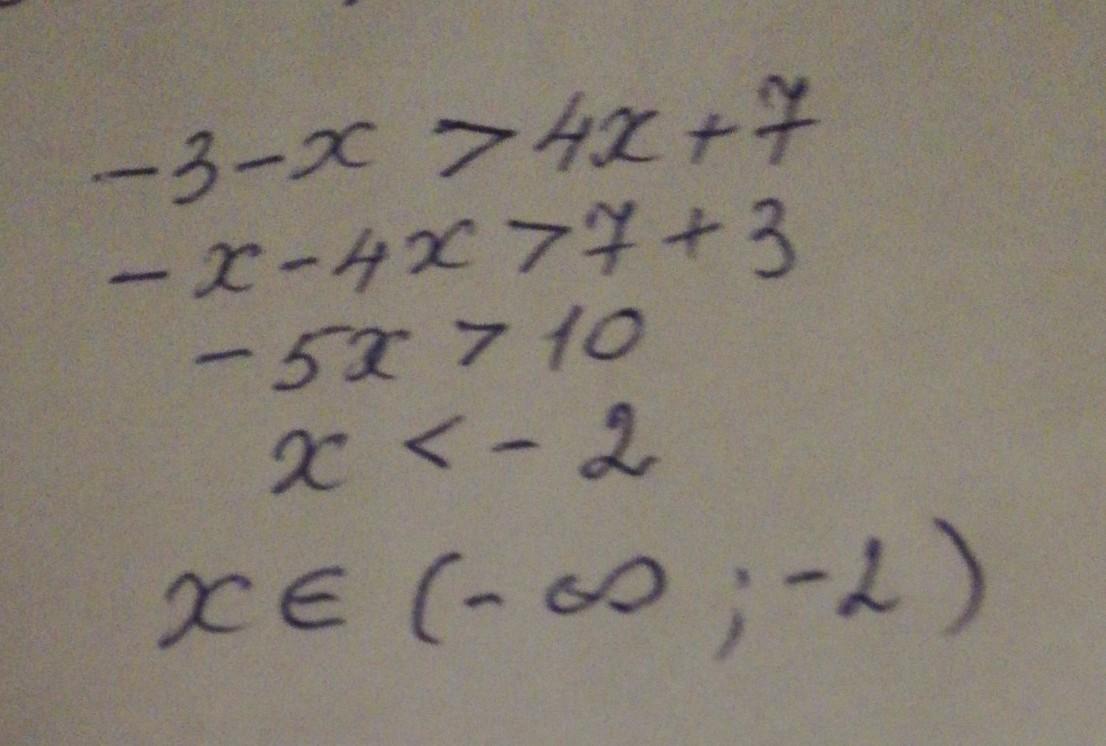 -3-x > 4x+7
-x-4x > 7+3
-5x > 10
x < -2
x ∈ (-∞ ; -2)